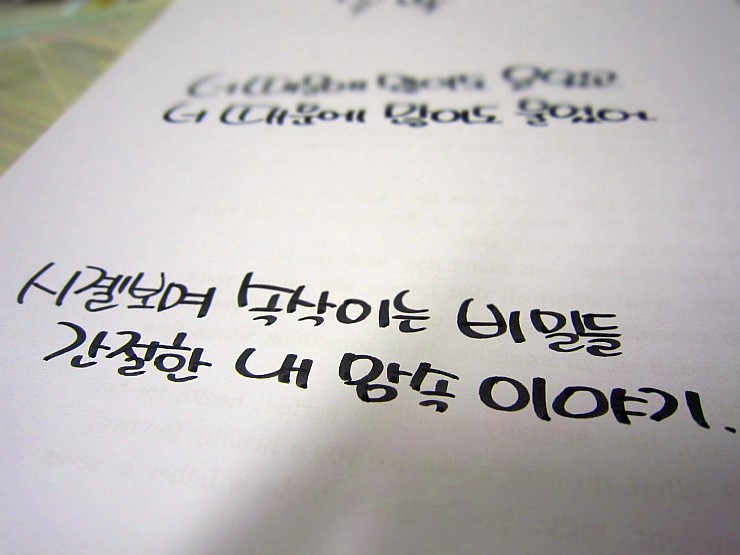 너 때문에 많이도
너 때문에 많이도 울었어
시곌보며 속삭이는 비밀들
간절한 내 맘속 이야기.